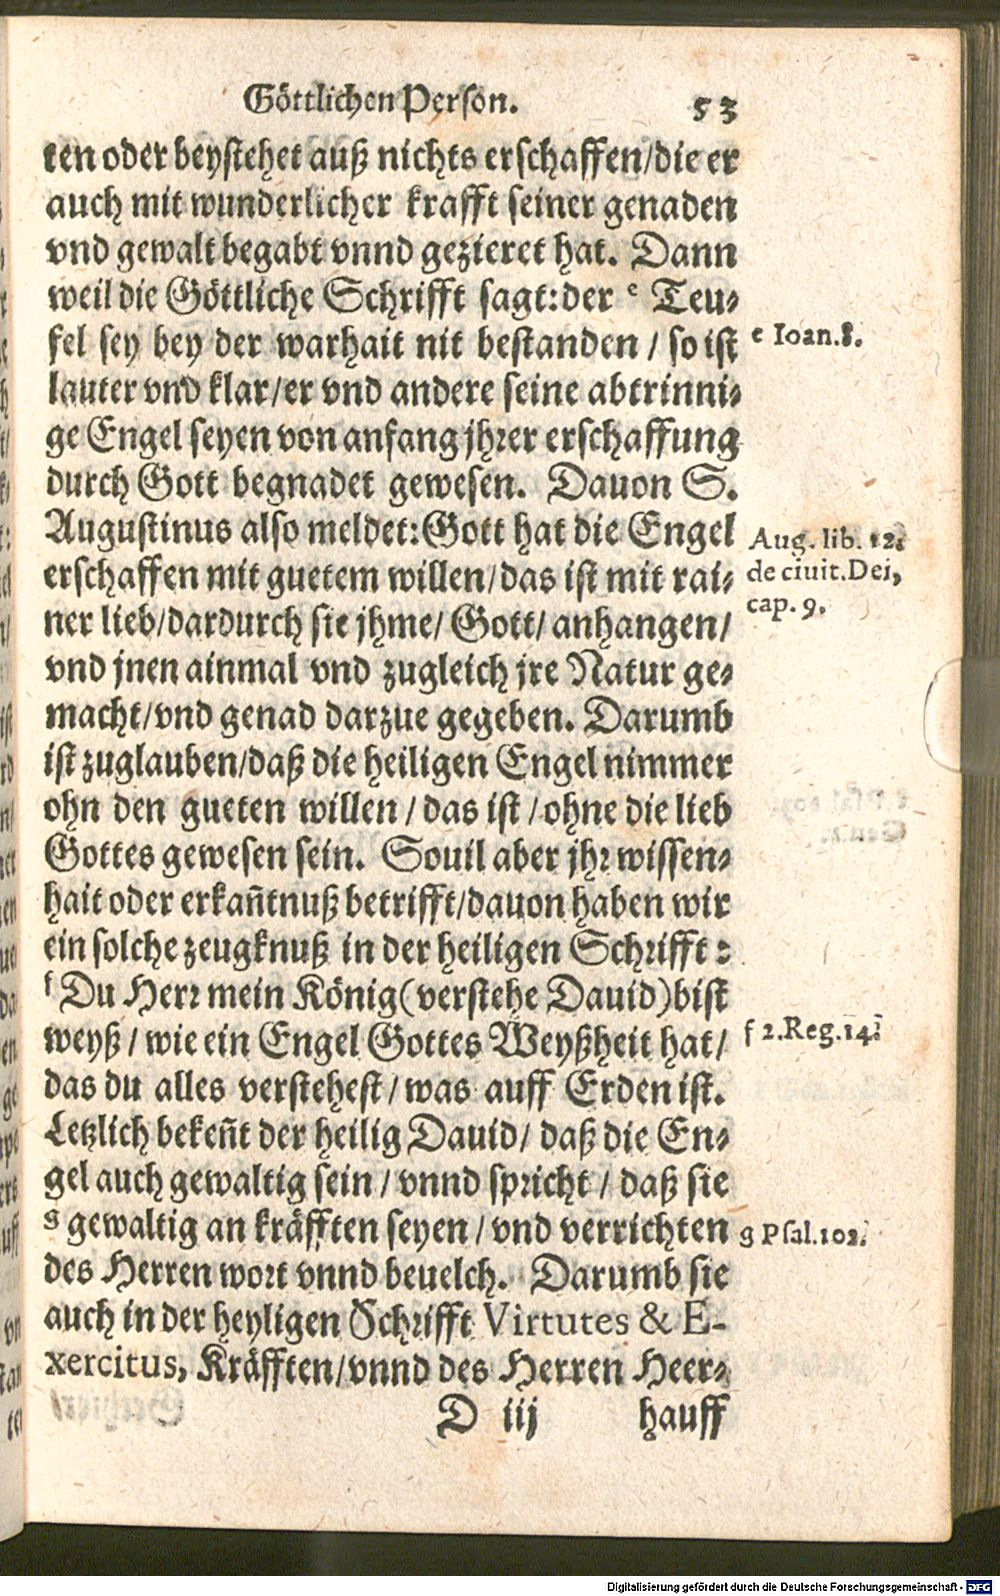 Göttlichen Person. 53
ten oder beystehet auß nichts erschaffen/die er
auch mit wunderlicher krafft seiner genaden
vnd gewalt begabt vnnd gezieret hat. Dann
weil die Göttliche Schrifft sagt:der e Teu-
fel sey bey der warhait nit bestanden / so ist
e Ioan.8.
lauter vnd klar/er vnd andere seine abtrinni-
ge Engel seyen von anfang jhrer erschaffung
durch Gott begnadet gewesen. Dauon S.
Augustinus also meldet:Gott hat die Engel
erschaffen mit guetem willen/das ist mit rai-
ner lieb/dardurch sie jhme/ Gott/ anhangen/
Aug. lib. 12.
de ciuit.Dei,
cap. 9.
vnd jnen ainmal vnd zugleich jre Natur ge-
macht/vnd genad darzue gegeben. Darumb
ist zuglauben/daß die heiligen Engel nimmer
ohn den gueten willen / das ist / ohne die lieb
Gottes gewesen sein. Souil aber jhr wissen-
hait oder erkañtnuß betrifft/dauon haben wir
ein solche zeugknuß in der heiligen Schrifft :
f Du Herr mein König(verstehe Dauid)bist
weyß / wie ein Engel Gottes Weyßheit hat/
f 2.Reg.14.
das du alles verstehest / was auff Erden ist.
Letzlich bekeñt der heilig Dauid/ daß die En-
gel auch gewaltig sein / vnnd spricht / daß sie
g gewaltig an kräfften seyen / vnd verrichten
g Psal.102.
des Herren wort vnnd beuelch. Darumb sie
auch in der heyligen Schrifft Virtutes & E-
xercitus, Kräfften/vnnd des Herren Heer-
D iij hauff
Digitalisierung gefördert durch die Deutsche Forschungsgemeinschaft - DFG